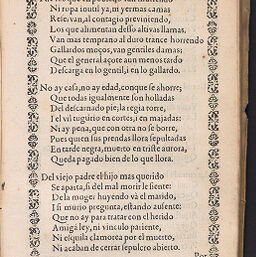 Ni ropa inutil ya, ni yermas camas
Releivan, al contagio previniendo,
Los que alimentan desso altivas llamas,
Van mas temprano al duro trance horrendo
Gallardos moços, van gentiles damas;
Que el general açote aun menos tardo
Descarga en lo gentil, i en lo gallardo.
No ay casa, no ay edad, conque se ahorre;
Que todas igualmente son holladas
Del descarnado pie; la regia torre,
I el vil tugurio en cortes, i en majadas:
Ni ay pena, que con otra no se borre,
Pues quien sus prendas llora sepultadas
En tarde negra, muerto en triste aurora,
Queda pagado bien de lo que llora.
Del viejo padre el hijo mas querido
Se aparta, si del mal morir le siente:
De la muger huyendo và el marido,
I si murio pregunta, estando ausente:
Que no ay para tratar con el herido
Amiga ley, ni vinculo pariente,
Ni esquila clamorea por el muerto,
Ni acaban de cerrar sepulcro abierto.
Por